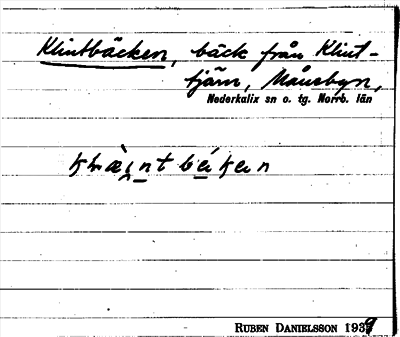 Klintbäcken, bäck från Klint-
tjärn, Månsbyn,
Nederkalix sn o. tg. Norrb. län
RUBEN DANIELSSON 1939